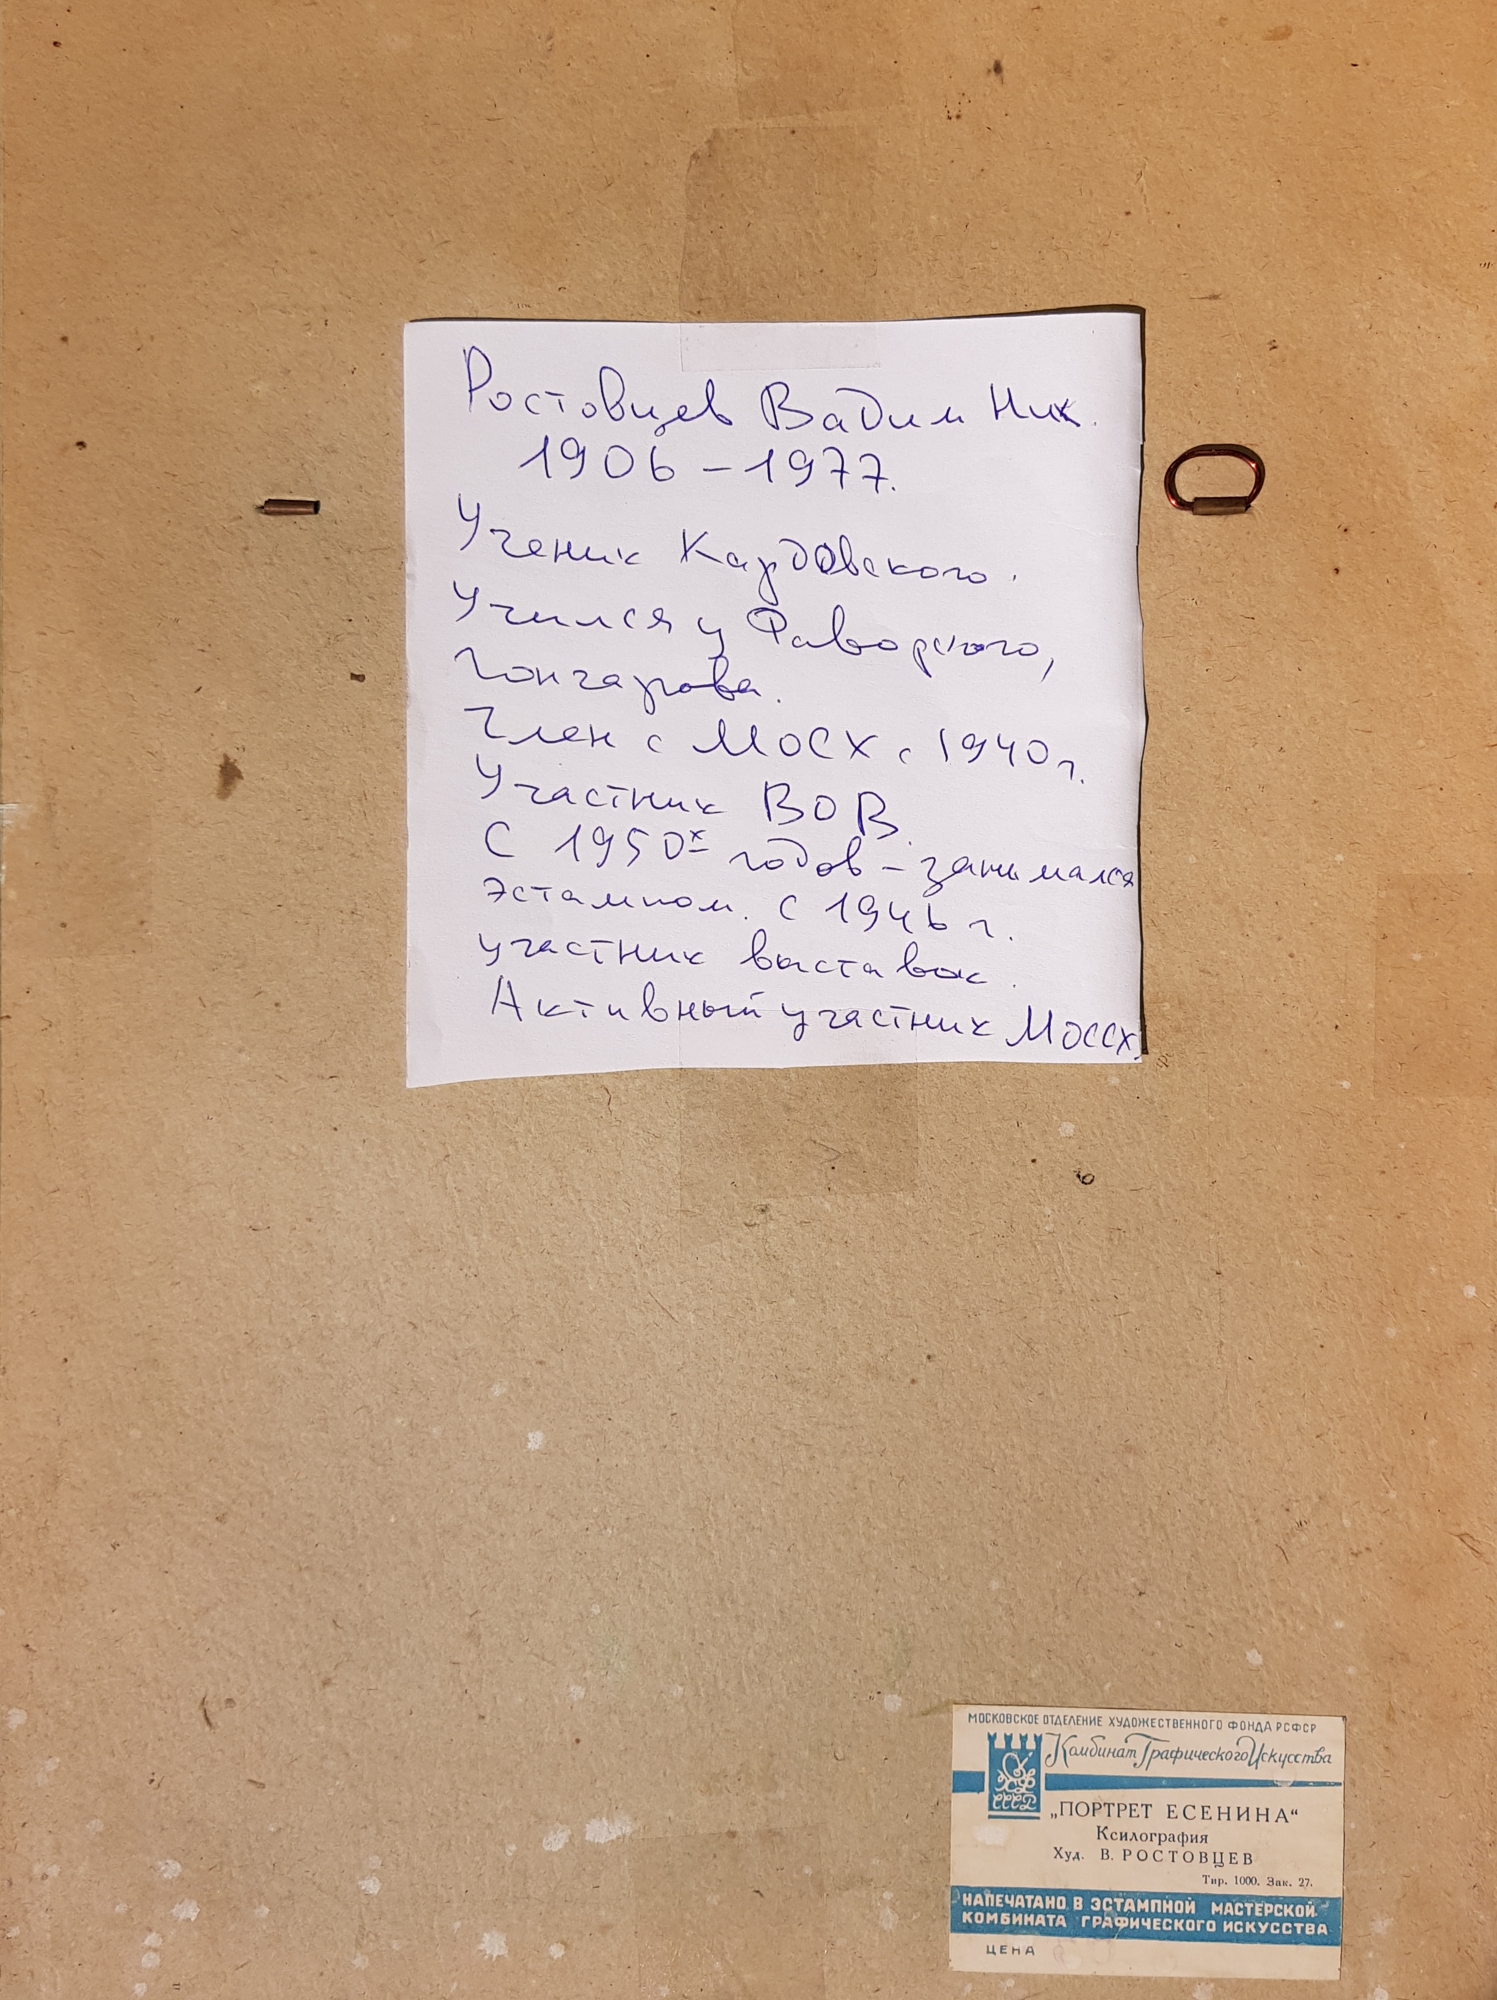 Ростовцев Вадим Ник.
1906 – 1977.
Ученик Кардовского.
Учился у Фаворского,
Гончарова.
Член с МОСХ с 1940 г.
Участник ВОВ.
С 1950х годов – занимался
эстампом. С 1946 г.
участник выставок.
Активный участник МОССХ.
МОСКОВСКОЕ ОТДЕЛЕНИЕ ХУДОЖЕСТВЕННОГО ФОНДА РСФСР
Комбинат Графического Искусства
ХФ
СССР
„ПОРТРЕТ ЕСЕНИНА“
Ксилография
Худ. В. РОСТОВЦЕВ
Тир. 1000. Зак. 27.
НАПЕЧАТАНО В ЭСТАМПНОЙ МАСТЕРСКОЙ
КОМБИНАТА ГРАФИЧЕСКОГО ИСКУССТВА
ЦЕНА